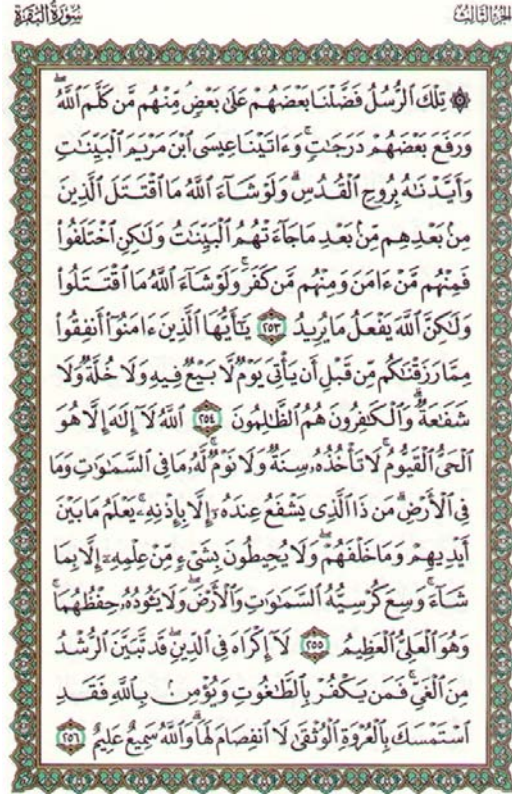 الجزء الثالث
سورة البقرة
۞ تِلْكَ ٱلرُّسُلُ فَضَّلْنَا بَعْضَهُمْ عَلَىٰ بَعْضٍ مِّنْهُم مَّن كَلَّمَ ٱللَّهُ ۖ
وَرَفَعَ بَعْضَهُمْ دَرَجَٰتٍ ۚ وَءَاتَيْنَا عِيسَى ٱبْنَ مَرْيَمَ ٱلْبَيِّنَٰتِ
وَأَيَّدْنَٰهُ بِرُوحِ ٱلْقُدُسِ ۗ وَلَوْ شَآءَ ٱللَّهُ مَا ٱقْتَتَلَ ٱلَّذِينَ
مِنۢ بَعْدِهِم مِّنۢ بَعْدِ مَا جَآءَتْهُمُ ٱلْبَيِّنَٰتُ وَلَٰكِنِ ٱخْتَلَفُوا۟
فَمِنْهُم مَّنْ ءَامَنَ وَمِنْهُم مَّن كَفَرَ ۚ وَلَوْ شَآءَ ٱللَّهُ مَا ٱقْتَتَلُوا۟
وَلَٰكِنَّ ٱللَّهَ يَفْعَلُ مَا يُرِيدُ ٢٥٣ يَٰٓأَيُّهَا ٱلَّذِينَ ءَامَنُوٓا۟ أَنفِقُوا۟
مِمَّا رَزَقْنَٰكُم مِّن قَبْلِ أَن يَأْتِىَ يَوْمٌ لَّا بَيْعٌ فِيهِ وَلَا خُلَّةٌ وَلَا
شَفَٰعَةٌ ۗ وَٱلْكَٰفِرُونَ هُمُ ٱلظَّٰلِمُونَ ٢٥٤ ٱللَّهُ لَآ إِلَٰهَ إِلَّا هُوَ
ٱلْحَىُّ ٱلْقَيُّومُ ۚ لَا تَأْخُذُهُۥ سِنَةٌ وَلَا نَوْمٌ ۚ لَّهُۥ مَا فِى ٱلسَّمَٰوَٰتِ وَمَا
فِى ٱلْأَرْضِ ۗ مَن ذَا ٱلَّذِى يَشْفَعُ عِندَهُۥٓ إِلَّا بِإِذْنِهِۦ ۚ يَعْلَمُ مَا بَيْنَ
أَيْدِيهِمْ وَمَا خَلْفَهُمْ ۖ وَلَا يُحِيطُونَ بِشَىْءٍ مِّنْ عِلْمِهِۦٓ إِلَّا بِمَا
شَآءَ ۚ وَسِعَ كُرْسِيُّهُ ٱلسَّمَٰوَٰتِ وَٱلْأَرْضَ ۖ وَلَا يَـُٔودُهُۥ حِفْظُهُمَا ۚ
وَهُوَ ٱلْعَلِىُّ ٱلْعَظِيمُ ٢٥٥ لَآ إِكْرَاهَ فِى ٱلدِّينِ ۖ قَد تَّبَيَّنَ ٱلرُّشْدُ
مِنَ ٱلْغَىِّ ۚ فَمَن يَكْفُرْ بِٱلطَّٰغُوتِ وَيُؤْمِنۢ بِٱللَّهِ فَقَدِ
ٱسْتَمْسَكَ بِٱلْعُرْوَةِ ٱلْوُثْقَىٰ لَا ٱنفِصَامَ لَهَا ۗ وَٱللَّهُ سَمِيعٌ عَلِيمٌ ٢٥٦